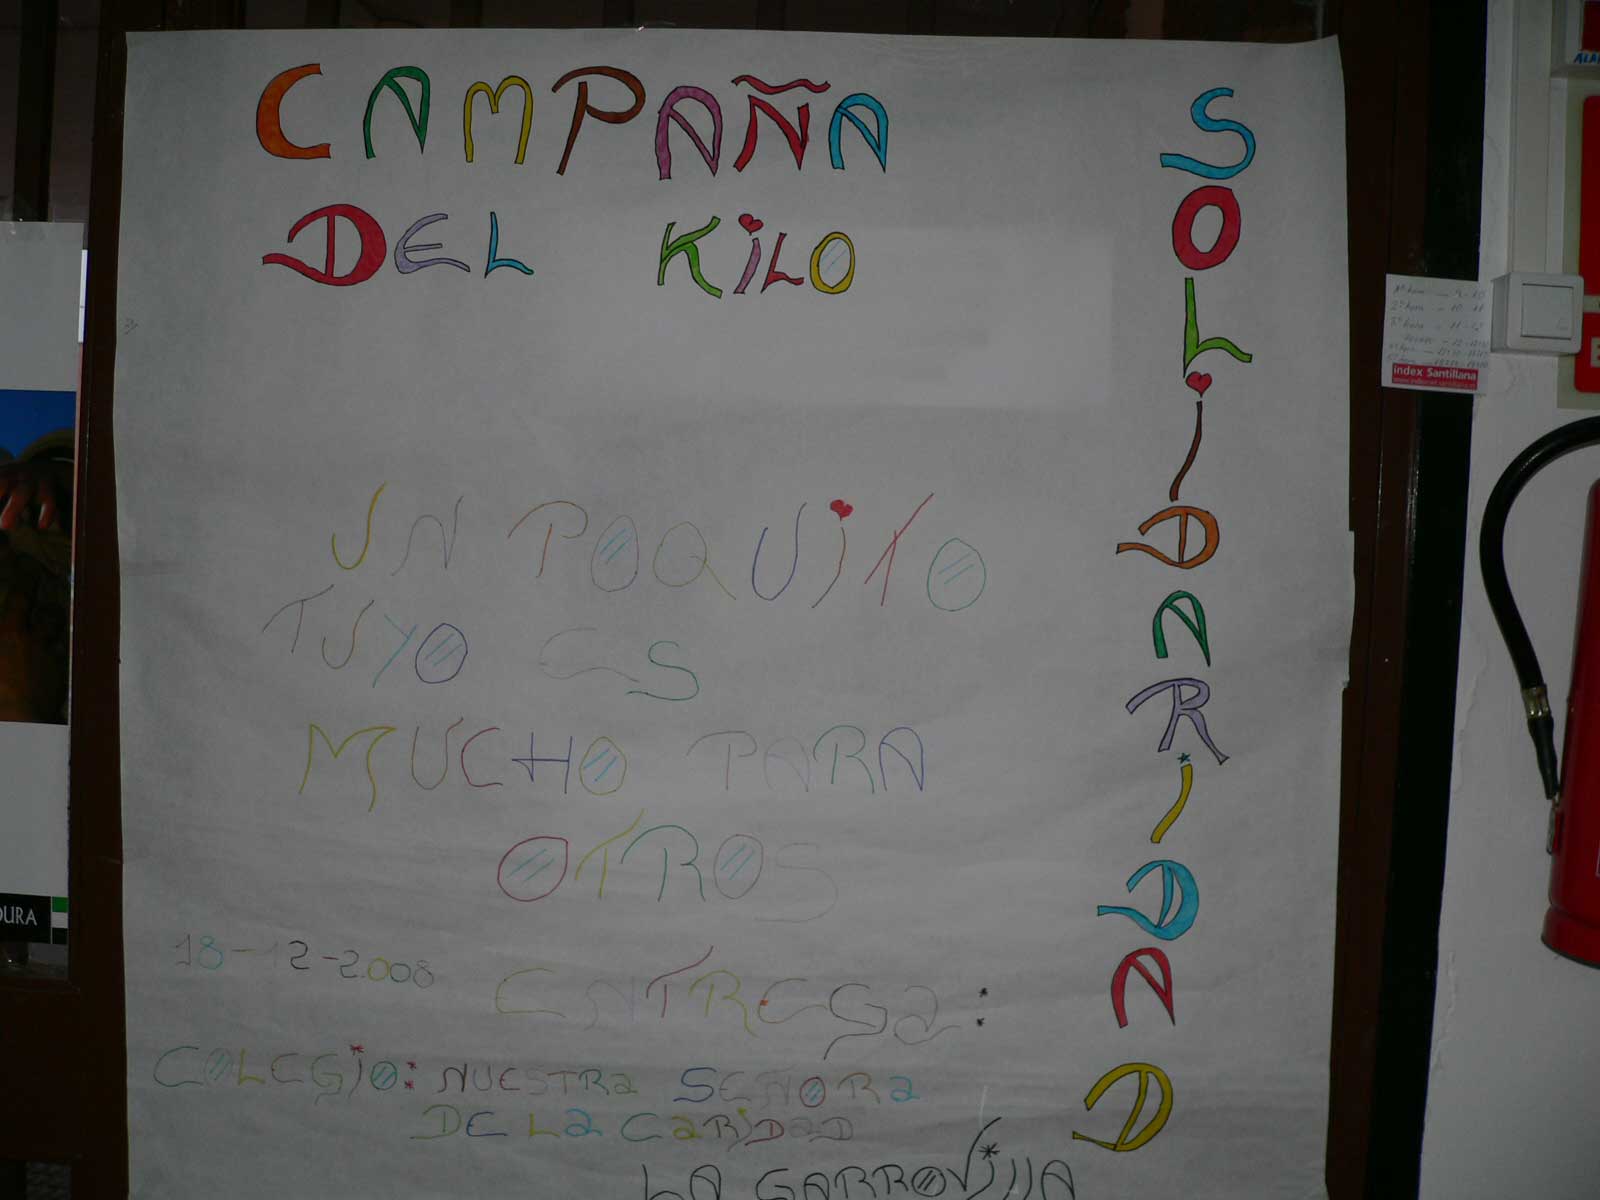 CAMPAÑA
DEL KiLO
SOLiDARiDAD
UN POQUiTO
TUYO ES
MUCHO PARA
OTROS
18-12-2008
ENTREGa:
COLEGiO: NUESTRa SEÑORa
DE La CaRiDaD
LA GARROViLLA
index Santillana